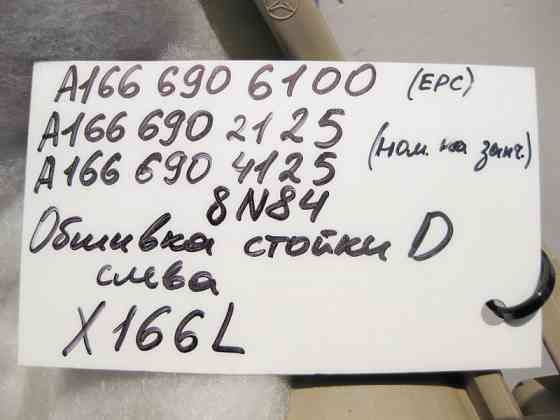 A166 690 6100 (EPC)
A166 690 2125
A166 690 4125 (ном. на запч.)
8N84
Обшивка стойки D
слева
X166L